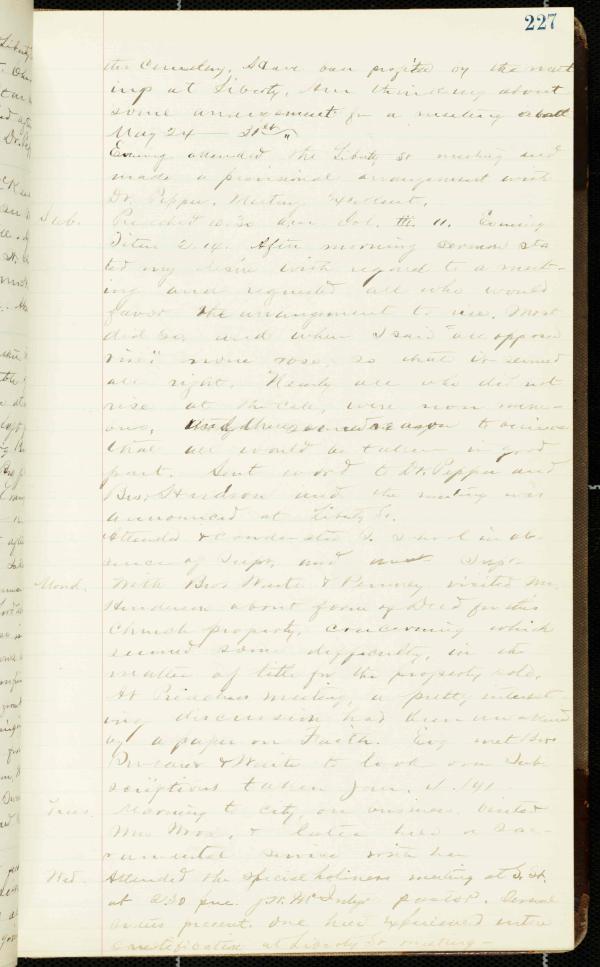 227
the Cemetery. Have been profited by the meet
ings at Liberty. Am thinking about
some arrangement for a meeting about
May 24 - 31st
Evening attended the Liberty St meeting and
made a provisional arrangement with
Dr. Pepper. Meeting excellent.
Sab. Preached 10.30 a.m. 11. Evening
Titus 2.14. After morning sermon sta
ted my desire with regard to a meet-
ing and requested all who would
favor the arrangement to rise. Most
did so, and when I said "all opposed
rise" none rose, so that it seemed
all right. Nearly all who did not
rise at the call, were non mem-
and there seemed reason to
that all would be taken in good
part. Sent word to Dr. Pepper and
Bro. Hudson and the meeting was
announced at Liberty St.
Attended & conducted S. School in ab-
sence of Supt. and Supt.
Mond. With Bros Waite & Penney visited Mr.
about form of Deed for this
Church property, concerning which
seemed some difficulty, in the
matter of title for the property sold.
At Preachers meeting, a pretty interest-
ing discussion had been awakened
by a paper on Faith. Evg met Bros
& Waite to look over Sub
scriptions taken Jan.
Tues. Morning to city, on business. Visited
Mrs & later held a Sac-
ramental service with her
Wed. Attended the special holiness meeting at
at 2.30 p.m. pastor. Several
present. One had experienced entire
sanctification at Liberty St meeting -